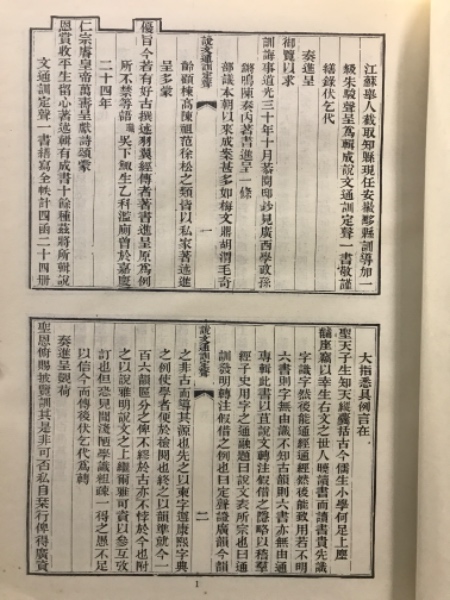 江蘇舉人截取知縣現任安徽黟縣訓導加一
級朱駿聲呈爲輯成說文通訓定聲一書敬謹
繕錄伏乞代
奏進呈
御覽以求
訓誨事道光三十年十月恭閱邸鈔見廣西學政孫
鏘鳴陳奏內著書進呈一條
部議本朝以來成案甚多如梅文鼎胡渭毛奇
說文通訓定聲
一
齡顧棟高陳祖范徐松之類皆以私家著述進
呈多蒙
優旨今若有好古撰述羽翼經傳者著書進呈原爲例
所不禁等語職吳下鯫生乙科濫廁曾於嘉慶
二十四年
仁宗睿皇帝萬壽呈獻詩頌蒙
恩賞收平生留心著述輯有成書十餘種茲將所輯說
文通訓定聲一書繕寫全帙計四函二十四冊
大指悉具例言在
聖天子生知天縱囊括古今儒生小學何足上塵
黼座竊以幸生右文之世人曉讀書而讀書貴先識
字識字然後能通經通經然後能致用若不明
六書則字無由識不知古韻則六書亦無由通
專輯此書以苴說文轉注假借之隱略以稽羣
經子史用字之通融題曰說文表所宗也曰通
訓發明轉注假借之例也曰定聲證廣韻今韻
說文通訓定聲
二
之非古而導其源也先之以柬字遵康熙字典
之例使學者便於檢閱也終之以韻準就今一
百六韻區分之俾不終於古亦不悖於今也附
之以說雅明說文之上繼爾雅可資以參互攷
訂也但恐見聞淺陋學識粗疎一得之愚不足
以信今而傳後伏乞代爲轉
奏進呈觀荷
聖恩俯賜披覽訓其是非可否私自栞行俾得廣資
1